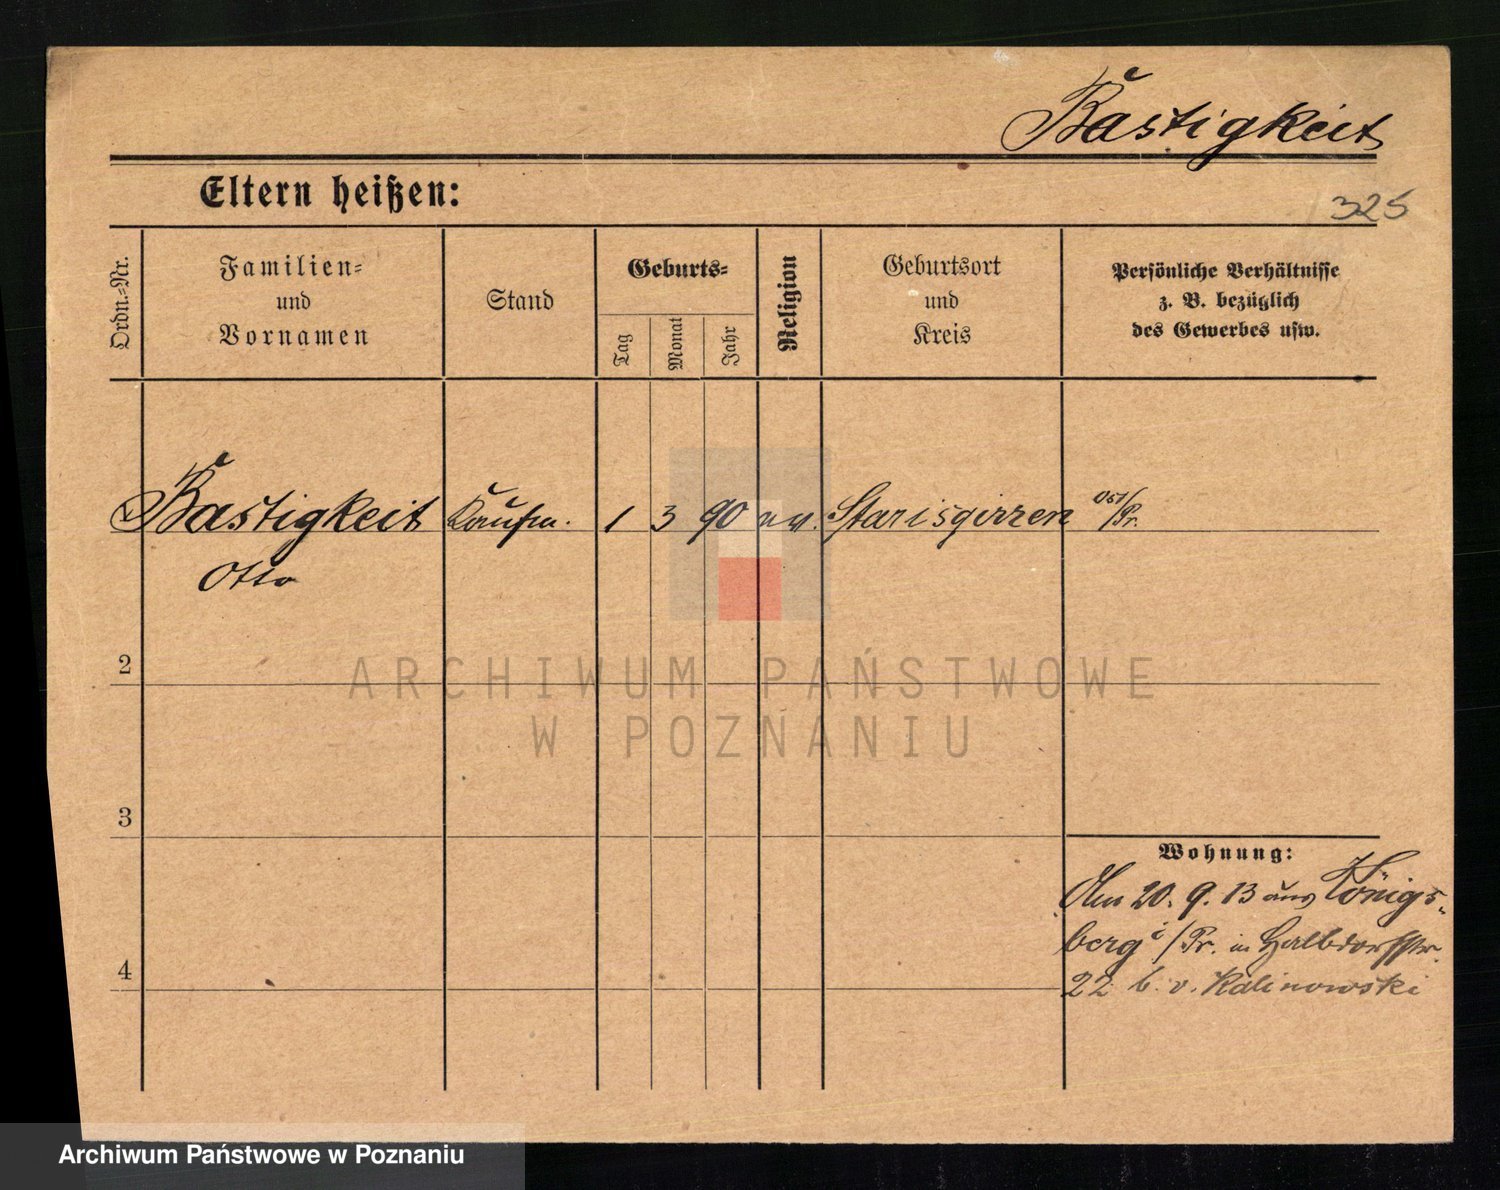 Bastigkeit
Eltern heißen:
325
Ordn.=Nr.
Familien=
und
Vornamen
Stand
Geburts=
Tag
Monat
Jahr
Religion
Geburtsort
und
Kreis
Persönliche Verhältnisse
z. B. bezüglich
des Gewerbes usw.
Bastigkeit Kaufm. 1 3 90 Starisgirren Ost/Pr.
Otto
2
ARCHIWUM PAŃSTWOWE
W POZNANIU
3
Wohnung:
Am 20. 9. 13 aus Königs-
berg i/Pr. in Halbdorfstr.
4
22 b. v. Kalinowski
Archiwum Państwowe w Poznaniu